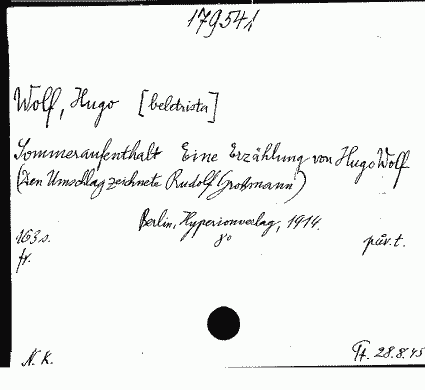 179541
Wolf, Hugo [beletrista]
Sommeraufenthalt Eine Erzählung von Hugo Wolf
(Den Umschlag zeichnete Rudolf Großmann)
Berlin, Hyperionverlag, 1914.
8°
163 s. pův. t.
fr.
N. K. 28.8.45